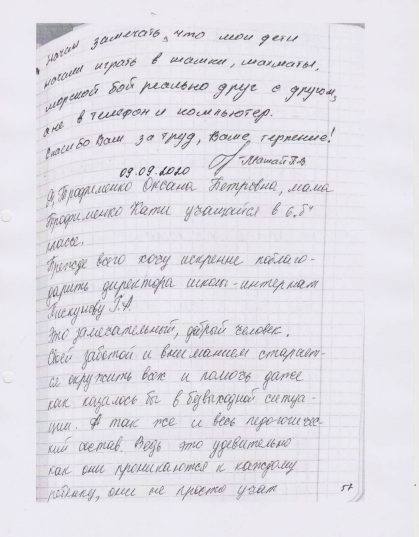 начал замечать, что мои дети
начали играть в шашки, шахматы,
морской бой реально друг с другом,
а не в телефон и компьютер.
Спасибо Вам за труд, Ваше терпение!
09.09.2020
Я, Трофименко Оксана Петровна, мама
Трофименко Кати учащийся в 6 "б"
классе.
Прежде всего хочу искренне поблаго-
дарить директора школы-интернат
Пискунову Г.А.
Это замечательный, добрый человек.
Своей заботой и вниманием старает-
ся окружить всех и помочь даже
как казалось бы в безвыходной ситуа-
ции. А так же и весь педогогичес-
кий состав. Ведь это удевительно
как они проникаются к каждому
ребенку, они не просто учат
57